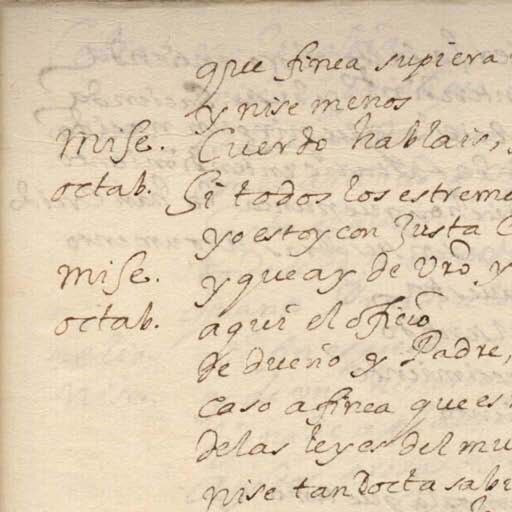 que finea supiera
y nise menos
Mise. Cuerdo hablais,
octab. Si todos los estremo
yo estoy con Justa C
Mise. y que ay de Vro. y
octab. aqui el oficio
de dueño y Padre,
caso a finea que es
de las leyes del mu
nise tan docta sabi